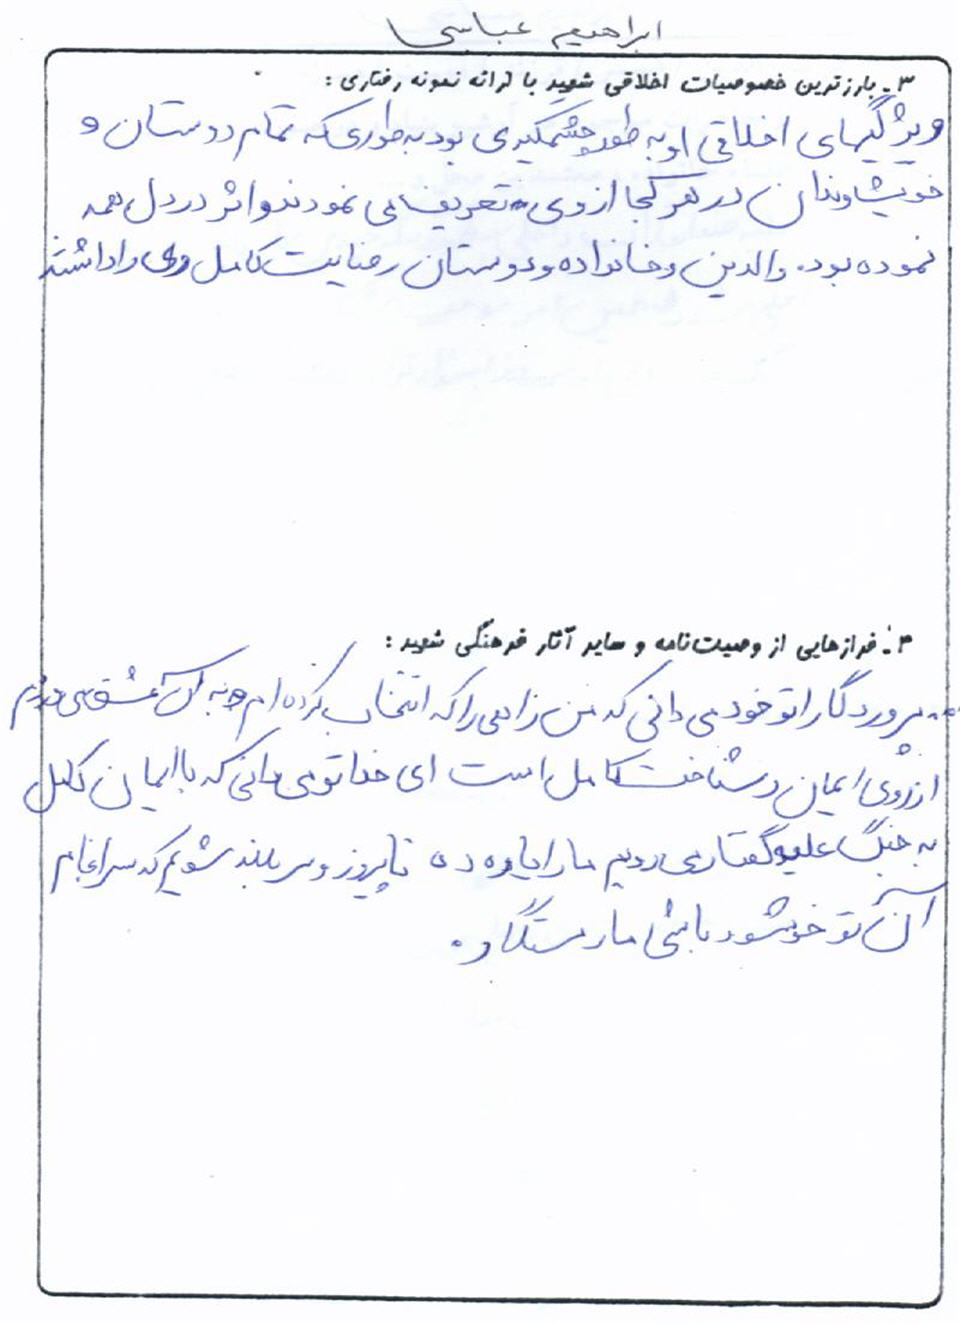 ابراهیم عباسی
۳ـ بارزترین خصوصیات اخلاقی شهید با ارائه نمونه رفتاری :
ویژگیهای اخلاقی او به طور چشمگیری بود به طوری که تمام دوستان و
خویشاوندان در هر کجا از وی تعریف می نمودند و اثر در دل همه
نموده بود. والدین و خانواده و دوستان رضایت کامل وی را داشتند
۴ـ فرازهایی از وصیت‌نامه و سایر آثار فرهنگی شهید :
پروردگارا تو خود می دانی که من راهی را که انتخاب کرده ام و به آن عشق می ورزم
از روی ایمان و شناخت کامل است ای خدا تو می دانی که با ایمان کامل
به جنگ علیه کفتار می رویم ما را یاری ده تا پیروز و سربلند شویم که سرانجام
آن تو خوشنود باشی ما رستگار.